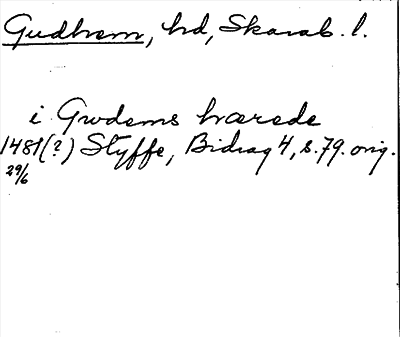 Gudhem, hd, Skarab. l.
i Gwdems hærede
1481(?) Styffe, Bidrag 4, s. 79. orig.
29/6